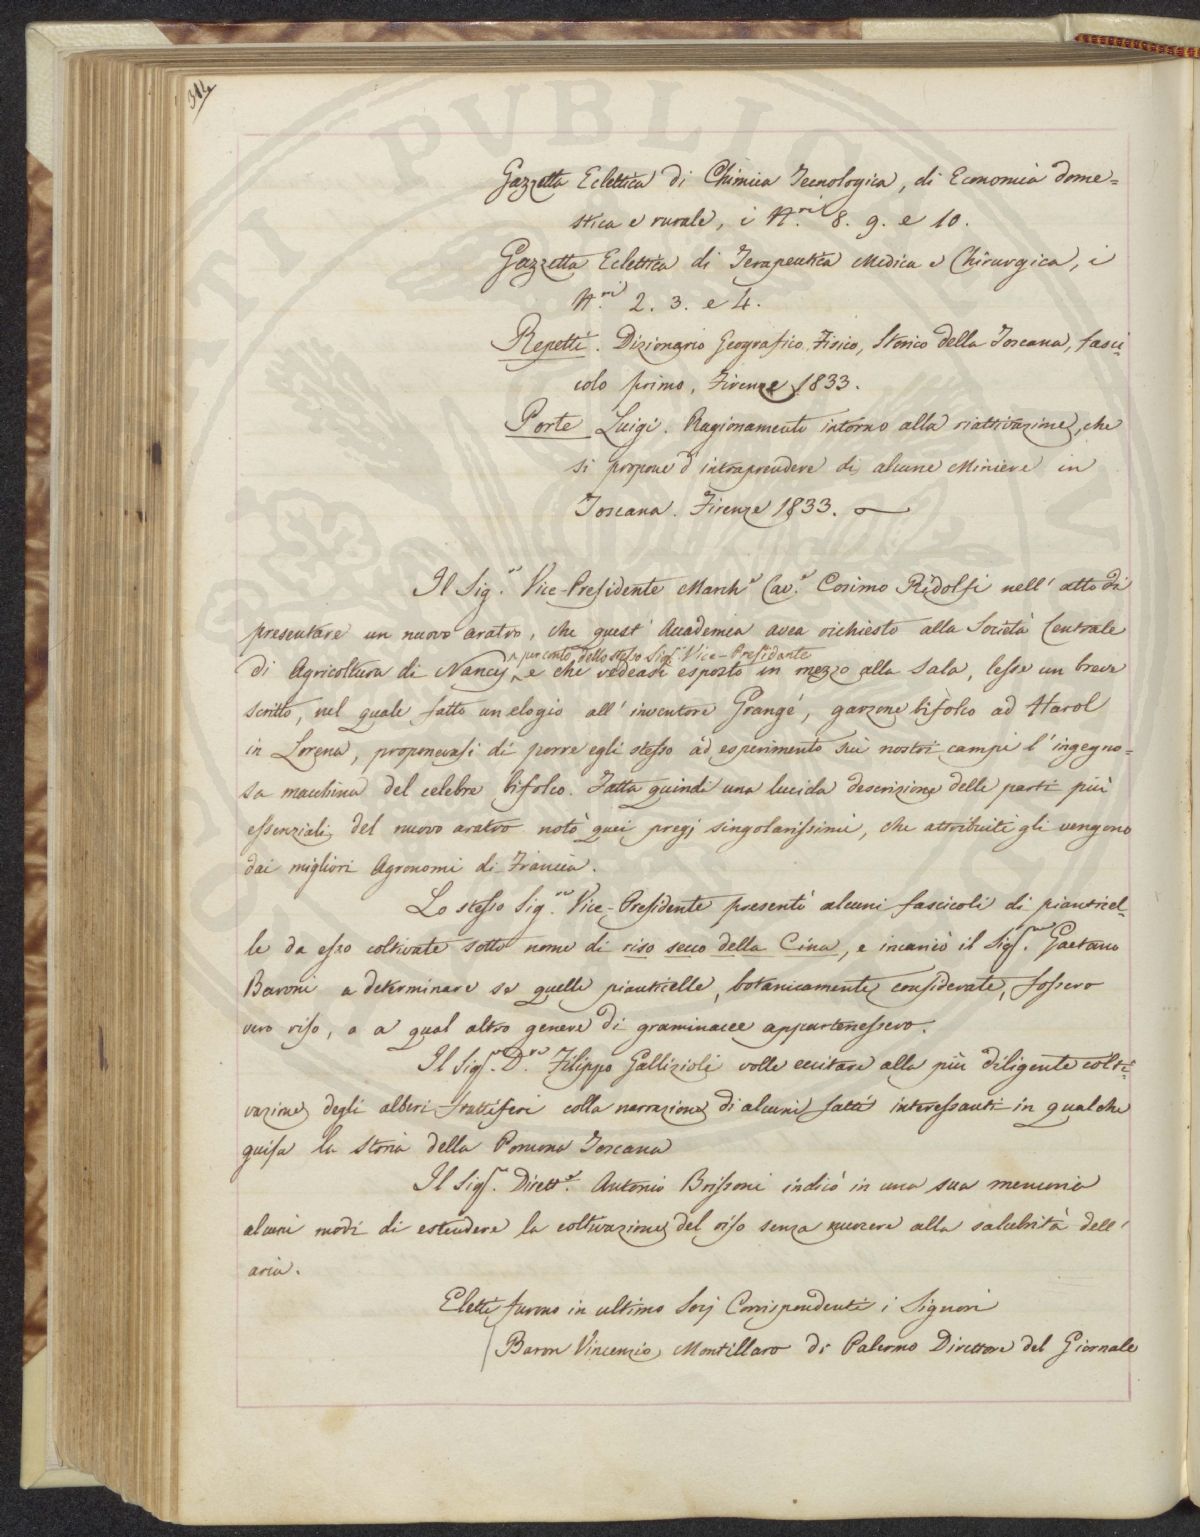 314
Gazzetta Eclettica di Chimica Tecnologica, di Economia dome=
stica e rurale, i N.ri 8. 9. e 10.
Gazzetta Eclettica di Terapeutica Medica e Chirurgica, i
N.ri 2. 3. e 4.
Repetti. Dizionario Geografico, Fisico, Storico della Toscana, fasci=
colo primo, Firenze 1833.
Porte Luigi. Ragionamento intorno alla riattivazione, che
si propone d'intraprendere di alcune Miniere in
Toscana. Firenze 1833.
Il Sig.r Vice-Presidente March.e Cav.e Cosimo Ridolfi nell'atto di
presentare un nuovo aratro, che quest'Accademia avea richiesto alla Società Centrale
per conto dello stesso Sig.r Vice-Presidente
di Agricoltura di Nancy, e che vedeasi esposto in mezzo alla sala, lesse un breve
scritto, nel quale fatto un elogio all'inventore Grangé, garzone bifolco ad Harol
in Lorena, proponevasi di porre egli stesso ad esperimento sui nostri campi l'ingegno=
sa macchina del celebre bifolco. Fatta quindi una lucida descrizione delle parti più
essenziali del nuovo aratro notò quei pregj singolarissimi, che attribuiti gli vengono
dai migliori Agronomi di Francia.
Lo stesso Sig.re Vice-Presidente presentò alcuni fascicoli di pianticel=
le da esso coltivate sotto nome di riso secco della Cina, e incaricò il Sig.re Gaetano
Baroni a determinare se quelle pianticelle, botanicamente considerate, fossero
vero riso, o a qual altro genere di graminacee appartenessero.
Il Sig.r D.re Filippo Gallizioli volle eccitare alla più diligente colti=
vazione degli alberi fruttiferi colla narrazione di alcuni fatti interessanti in qualche
guisa la storia della Pomona Toscana
Il Sig.r Dirett.e Antonio Brissoni indicò in una sua memoria
alcuni modi di estendere la coltivazione del riso senza nuocere alla salubrità dell'
aria.
Eletti furono in ultimo Socj Corrispondenti i Signori
Baron Vincenzio Mortillaro di Palermo Direttore del Giornale